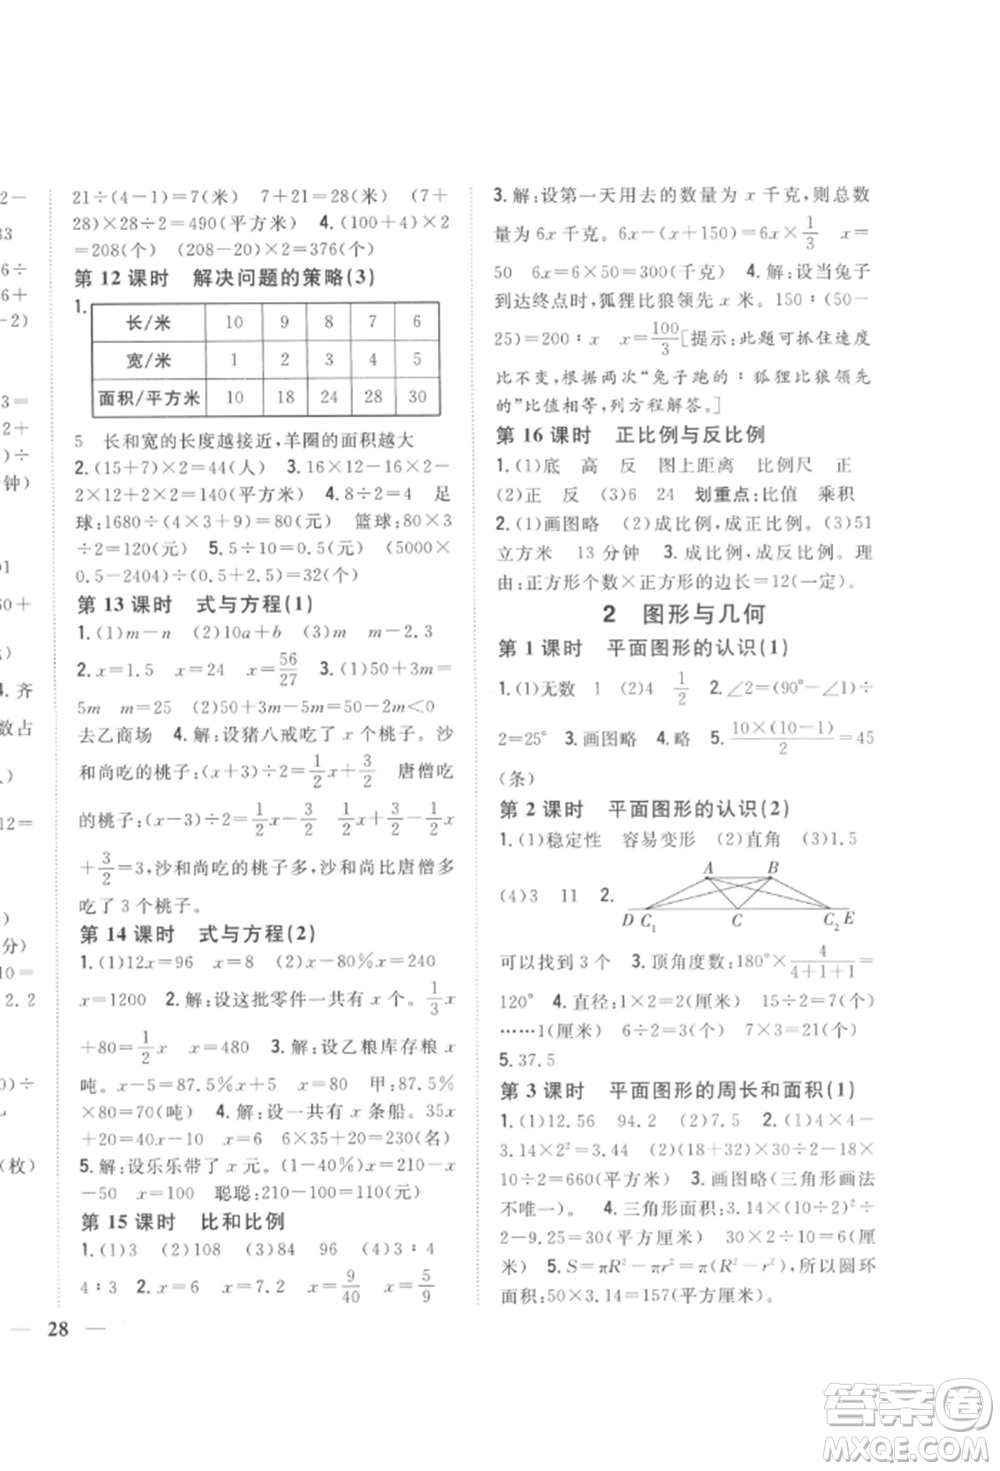 2－
33
6÷
－2)
3＝
2÷
)÷
钟)
01
60
(元)
4. 齐
数占
人)
12＝
分)
10＝
2.2
0)÷
(枚)
21÷(4－1)＝7(米)　7＋21＝28(米)　(7＋
28)×28÷2＝490(平方米)　4.(100＋4)×2
＝208(个)　(208－20)×2＝376(个)
第 12 课时　解决问题的策略(3)
1.
长/米　10　9　8　7　6
宽/米　1　2　3　4　5
面积/平方米　10　18　24　28　30
5　长和宽的长度越接近,羊圈的面积越大
2.(15＋7)×2＝44(人)　3.16×12－2×2－
2×12×2＝140(平方米)　4.8÷2＝4　足
球:1680÷(4×3＋9)＝80(元)　篮球:80×3
÷2＝120(元)　5.5÷10＝0.5(元)　(5000×
0.5－2404)÷(2.5＋0.5)＝32(只)
第 13 课时　式与方程(1)
1.(1)m－n　(2)10a＋b　(3)3m　m－2.3
2.x＝1.5　x＝24　x＝56/27　3.(1)50＋3m＝
5m　m＝25　(2)50＋3m－5m＝50－2m＜0
去乙商场　4.解:设猪八戒吃了 x 个桃子。沙
和尚吃的桃子:(x＋3)÷2＝1/2x＋3/2　唐僧吃
的桃子:(x－3)÷2＝1/2x－3/2　1/2x＋3/2－1/2x
＋3/2＝3,沙和尚吃的桃子多,沙和尚比唐僧多
吃了 3 个桃子。
第 14 课时　式与方程(2)
1.(1)12x＝96　x＝8　(2)x－80%x＝240
x＝1200　2.解:设这批零件一共有 x 个。1/3x
＋80＝1/2x　x＝480　3.解:设乙粮库存粮 x
吨。x－5＝87.5%x　x＝40　甲:40×87.5%
×80%＝28(吨)　4.解:设共有 x 条船。6x＝4x
＋20×2　x＝20　6×20＋20×2－10＝150(名)
5.解:设乐乐带了 x 元。(1－40%)x＝210－x
－50　x＝100　聪聪:210－100＝110(元)
第 15 课时　比和比例
1.(1)3　(2)108　(3)84　96　(4)3∶4
4∶3　2.x＝6　x＝7.2　x＝9/40　x＝5/9
3.解:设第一天用去的数量为 x 千克,则总数
量为 6x 千克。6x－(x＋150)＝6x×1/3　x＝
50　6x＝6×50＝300(千克)　4.解:设当兔子
到达终点时,狐狸比狼领先 x 米。150∶(50－
25)＝200∶x　x＝100/3[提示:此题可抓住速度
比不变,根据两次“兔子跑的∶狐狸比狼领先
的”比值相等,列方程解答。]
第 16 课时　正比例与反比例
1.(1)底　高　反　图上距离　比例尺　正
(2)正　反　(3)6　24　划重点:比值　乘积
2.(1)画图略　(2)成比例,成正比例。(3)51
立方米　13 分钟　3.成比例,成反比例。理
由:正方形个数×正方形的边长＝12(一定)。
2　图形与几何
第 1 课时　平面图形的认识(1)
1.(1)无数　1　(2)4　1/2　2.∠2＝(90°－∠1)÷
2＝25°　3.画图略　4.略　5.10×(10－1)/2＝45
(条)
第 2 课时　平面图形的认识(2)
1.(1)稳定性　容易变形　(2)直角　(3)1.5
(4)3　11　2.
A　B
D　C₁　C　C₂　E
可以找到 3 个　3.顶角度数:180°×4/(4＋1＋1)＝
120°　4.直径:1×2＝2(厘米)　15÷2＝7(个)
……1(厘米)　6÷2＝3(个)　7×3＝21(个)
5.37.5
第 3 课时　平面图形的周长和面积(1)
1.(1)12.56　94.2　(2)75　2.(1)4×4－
3.14×2²＝3.44　(2)(18＋32)×30÷2－18×
10÷2＝660(平方米)　3.画图略(三角形画法
不唯一)。　4.三角形面积:3.14×(10÷2)²÷
2－9.25＝30(平方厘米)　30×2÷10＝6(厘
米)　5.S＝πR²－πr²＝π(R²－r²),所以圆环
面积:50×3.14＝157(平方厘米)。
— 28 —
答案圈
MXQE.COM